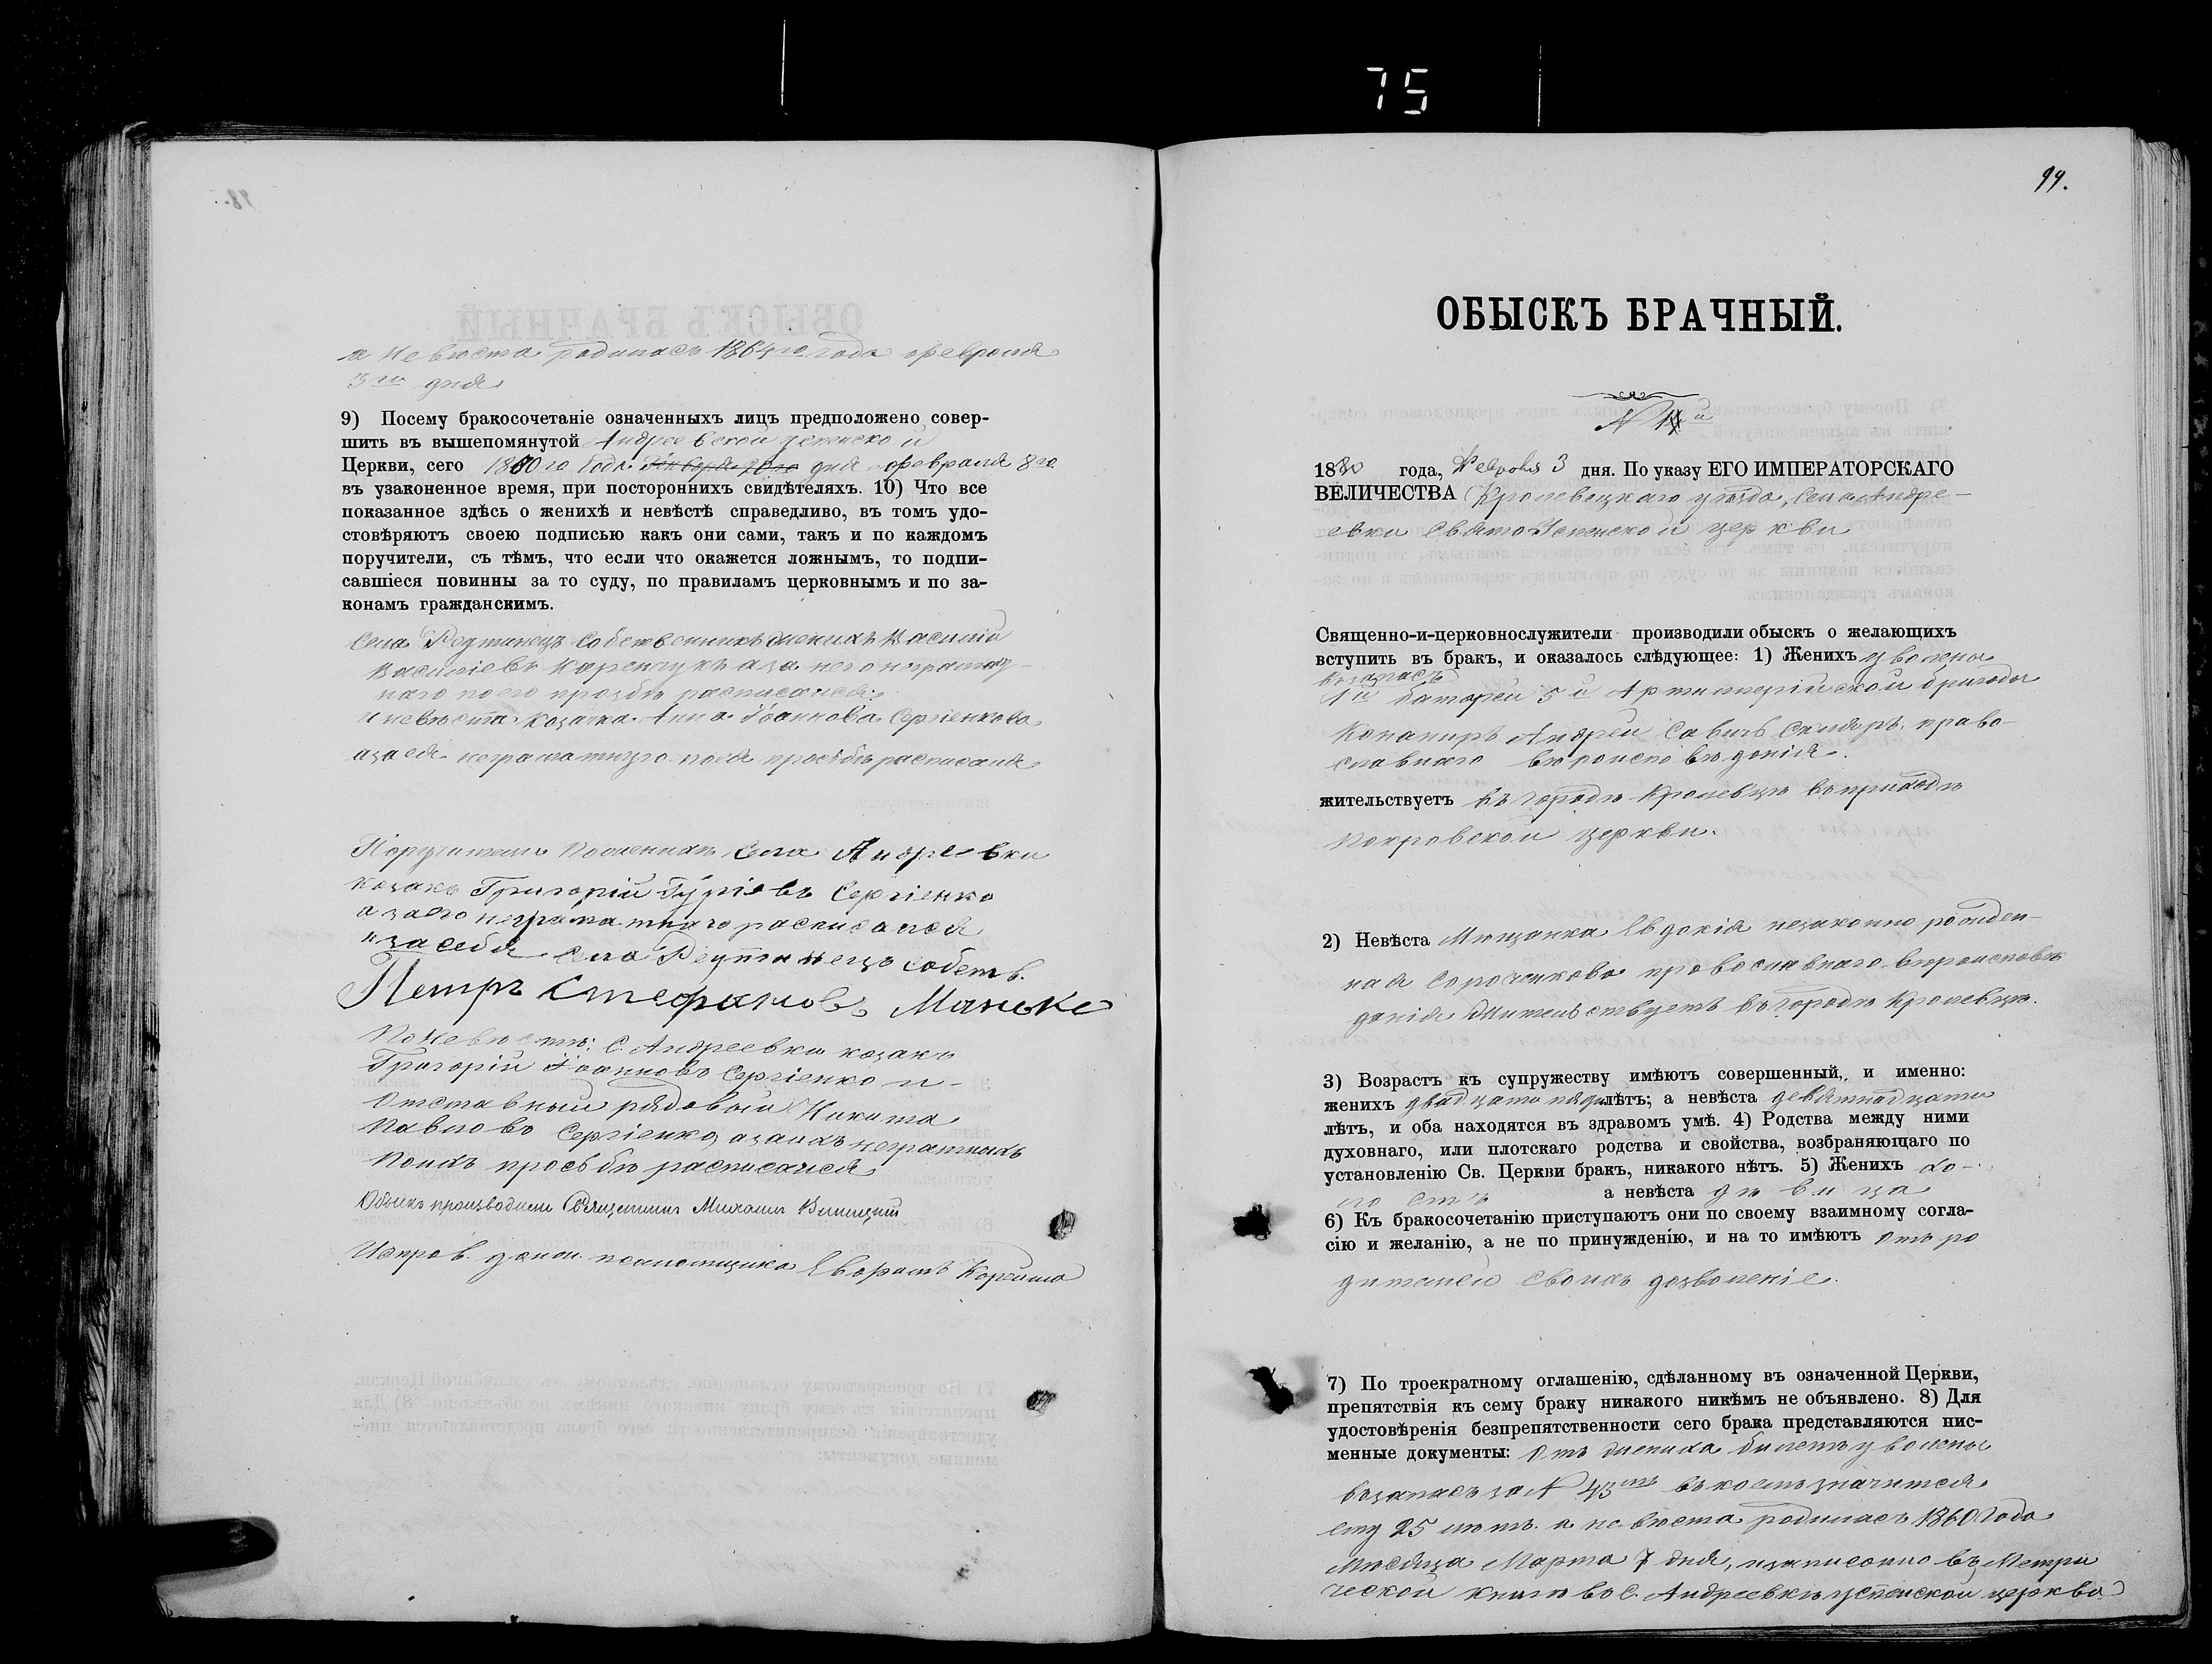 75
а невѣста родилась 1864го года февраля
3го дня
9) Посему бракосочетаніе означенныхъ лицъ предположено совер-
шить въ вышепомянутой Андреевской успенской
Церкви, сего 1880го Года Января 30го дня февраля 8го
въ узаконенное время, при постороннихъ свидѣтеляхъ. 10) Что все
показанное здѣсь о женихѣ и невѣстѣ справедливо, въ томъ удо-
стовѣряютъ своею подписью какъ они сами, такъ и по каждомъ
поручители, съ тѣмъ, что если что окажется ложнымъ, то подпи-
савшіеся повинны за то суду, по правиламъ церковнымъ и по за-
конамъ гражданскимъ.
Села Реутинецъ собственникъ женихъ Василій
Василіевъ а за него неграмот-
наго по его прозбѣ расписался.
и невѣста козачка Анна Іоаннова Сергіенкова
а за ея неграмотную по ея просьбѣ расписался
Поручители По женихѣ Села Андреевки
козакъ Григорій Гуріевъ Сергіенко
а за его неграмотнаго расписался
и за себя Села Реутинецъ собств.
Петръ Стефановъ Манько
По невѣстѣ: С. Андреевки козакъ
Григорій Іоанновъ Сергіенко и
Отставный рядовый Никита
Павловъ Сергіенко а за ихъ неграмотныхъ
по ихъ просьбѣ расписался
Обыскъ производили Священникъ Михаилъ
Исправ. долж. псаломщика
99.
ОБЫСКЪ БРАЧНЫЙ.
1880 года, Февраля 3 дня. По указу ЕГО ИМПЕРАТОРСКАГО
ВЕЛИЧЕСТВА Кролевецкаго уѣзда, Села Андре-
евки Свято Успенской церкви
Священно-и-церковнослужители производили обыскъ о желающихъ
вступить въ бракъ, и оказалось слѣдующее: 1) Женихъ уволены
въ запасъ
1й батареи 5й Артилерійской бригады
Конаниръ Андрей Савичъ Скляръ право-
славнаго вѣроисповѣданія.
жительствуетъ въ городѣ Кролевцѣ въ приходѣ
Покровской церкви.
2) Невѣста Мѣщанка Евдокія незаконно рожден-
ная Сороченкова православнаго вѣроисповѣ
данія жительствуетъ въ городѣ Кролевцѣ.
3) Возрастъ къ супружеству имѣютъ совершенный, и именно:
женихъ двадцати пяти лѣтъ; а невѣста девятнадцати
лѣтъ, и оба находятся въ здравомъ умѣ. 4) Родства между ними
духовнаго, или плотскаго родства и свойства, возбраняющаго по
установленію Св. Церкви бракъ, никакого нѣтъ. 5) Женихъ хо-
лостъ а невѣста дѣвица
6) Къ бракосочетанію приступаютъ они по своему взаимному согла-
сію и желанію, а не по принужденію, и на то имѣютъ отъ ро
дителей своихъ дозволеніе.
7) По троекратному оглашенію, сдѣланному въ означенной Церкви,
препятствія къ сему браку никакого никѣмъ не объявлено. 8) Для
удостовѣренія безпрепятственности сего брака представляются пис-
менные документы: Отъ жениха билетъ уволены
въ запасъ за № 43мъ въ коемъ значится
ему 25 лѣтъ. а невѣста родилась 1860 Года
Мѣсяца Марта 7 дня, записано въ Метри
ческой книгѣ въ С. Андреевкѣ успенской церкво